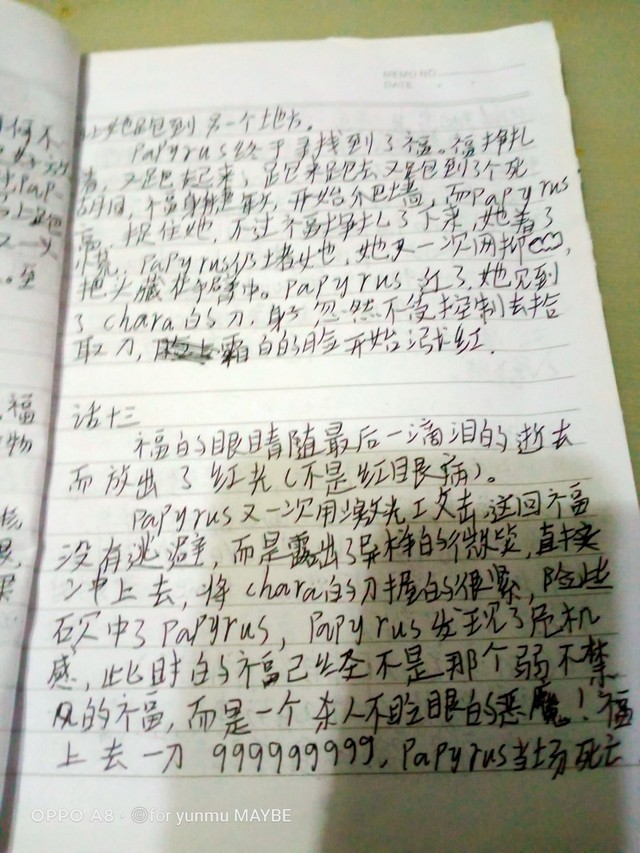 MEMO NO.
DATE
让她跑到另一个地方。
Papyrus终于寻找到了福。福挣扎
着,又跑起来,跑来跑去又跑到了个死
胡同,福身轻,开始爬墙,而Papyrus
捉住她,不过福挣扎了下来,她着了
慌,Papyrus仍堵着她,她又一次
把头藏在手臂中。Papyrus近了,她见到
了chara的刀,身子忽然不受控制去拾
取刀,霜白的脸开始涨红.
话十三
福的眼睛随最后一滴泪的逝去
而放出了红光(不是红眼病)。
Papyrus又一次用激光攻击,这回福
没有逃避,而是露出了异样的微笑,直接
冲上去,将chara的刀握的很紧,险些
砍中了Papyrus,Papyrus发现了危机
感,此时的福已经不是那个弱不禁
风的福,而是一个杀人不眨眼的恶魔!福
上去一刀999999999,Papyrus当场死亡
福
物
核
果
OPPO A8 · ©for yunmu MAYBE